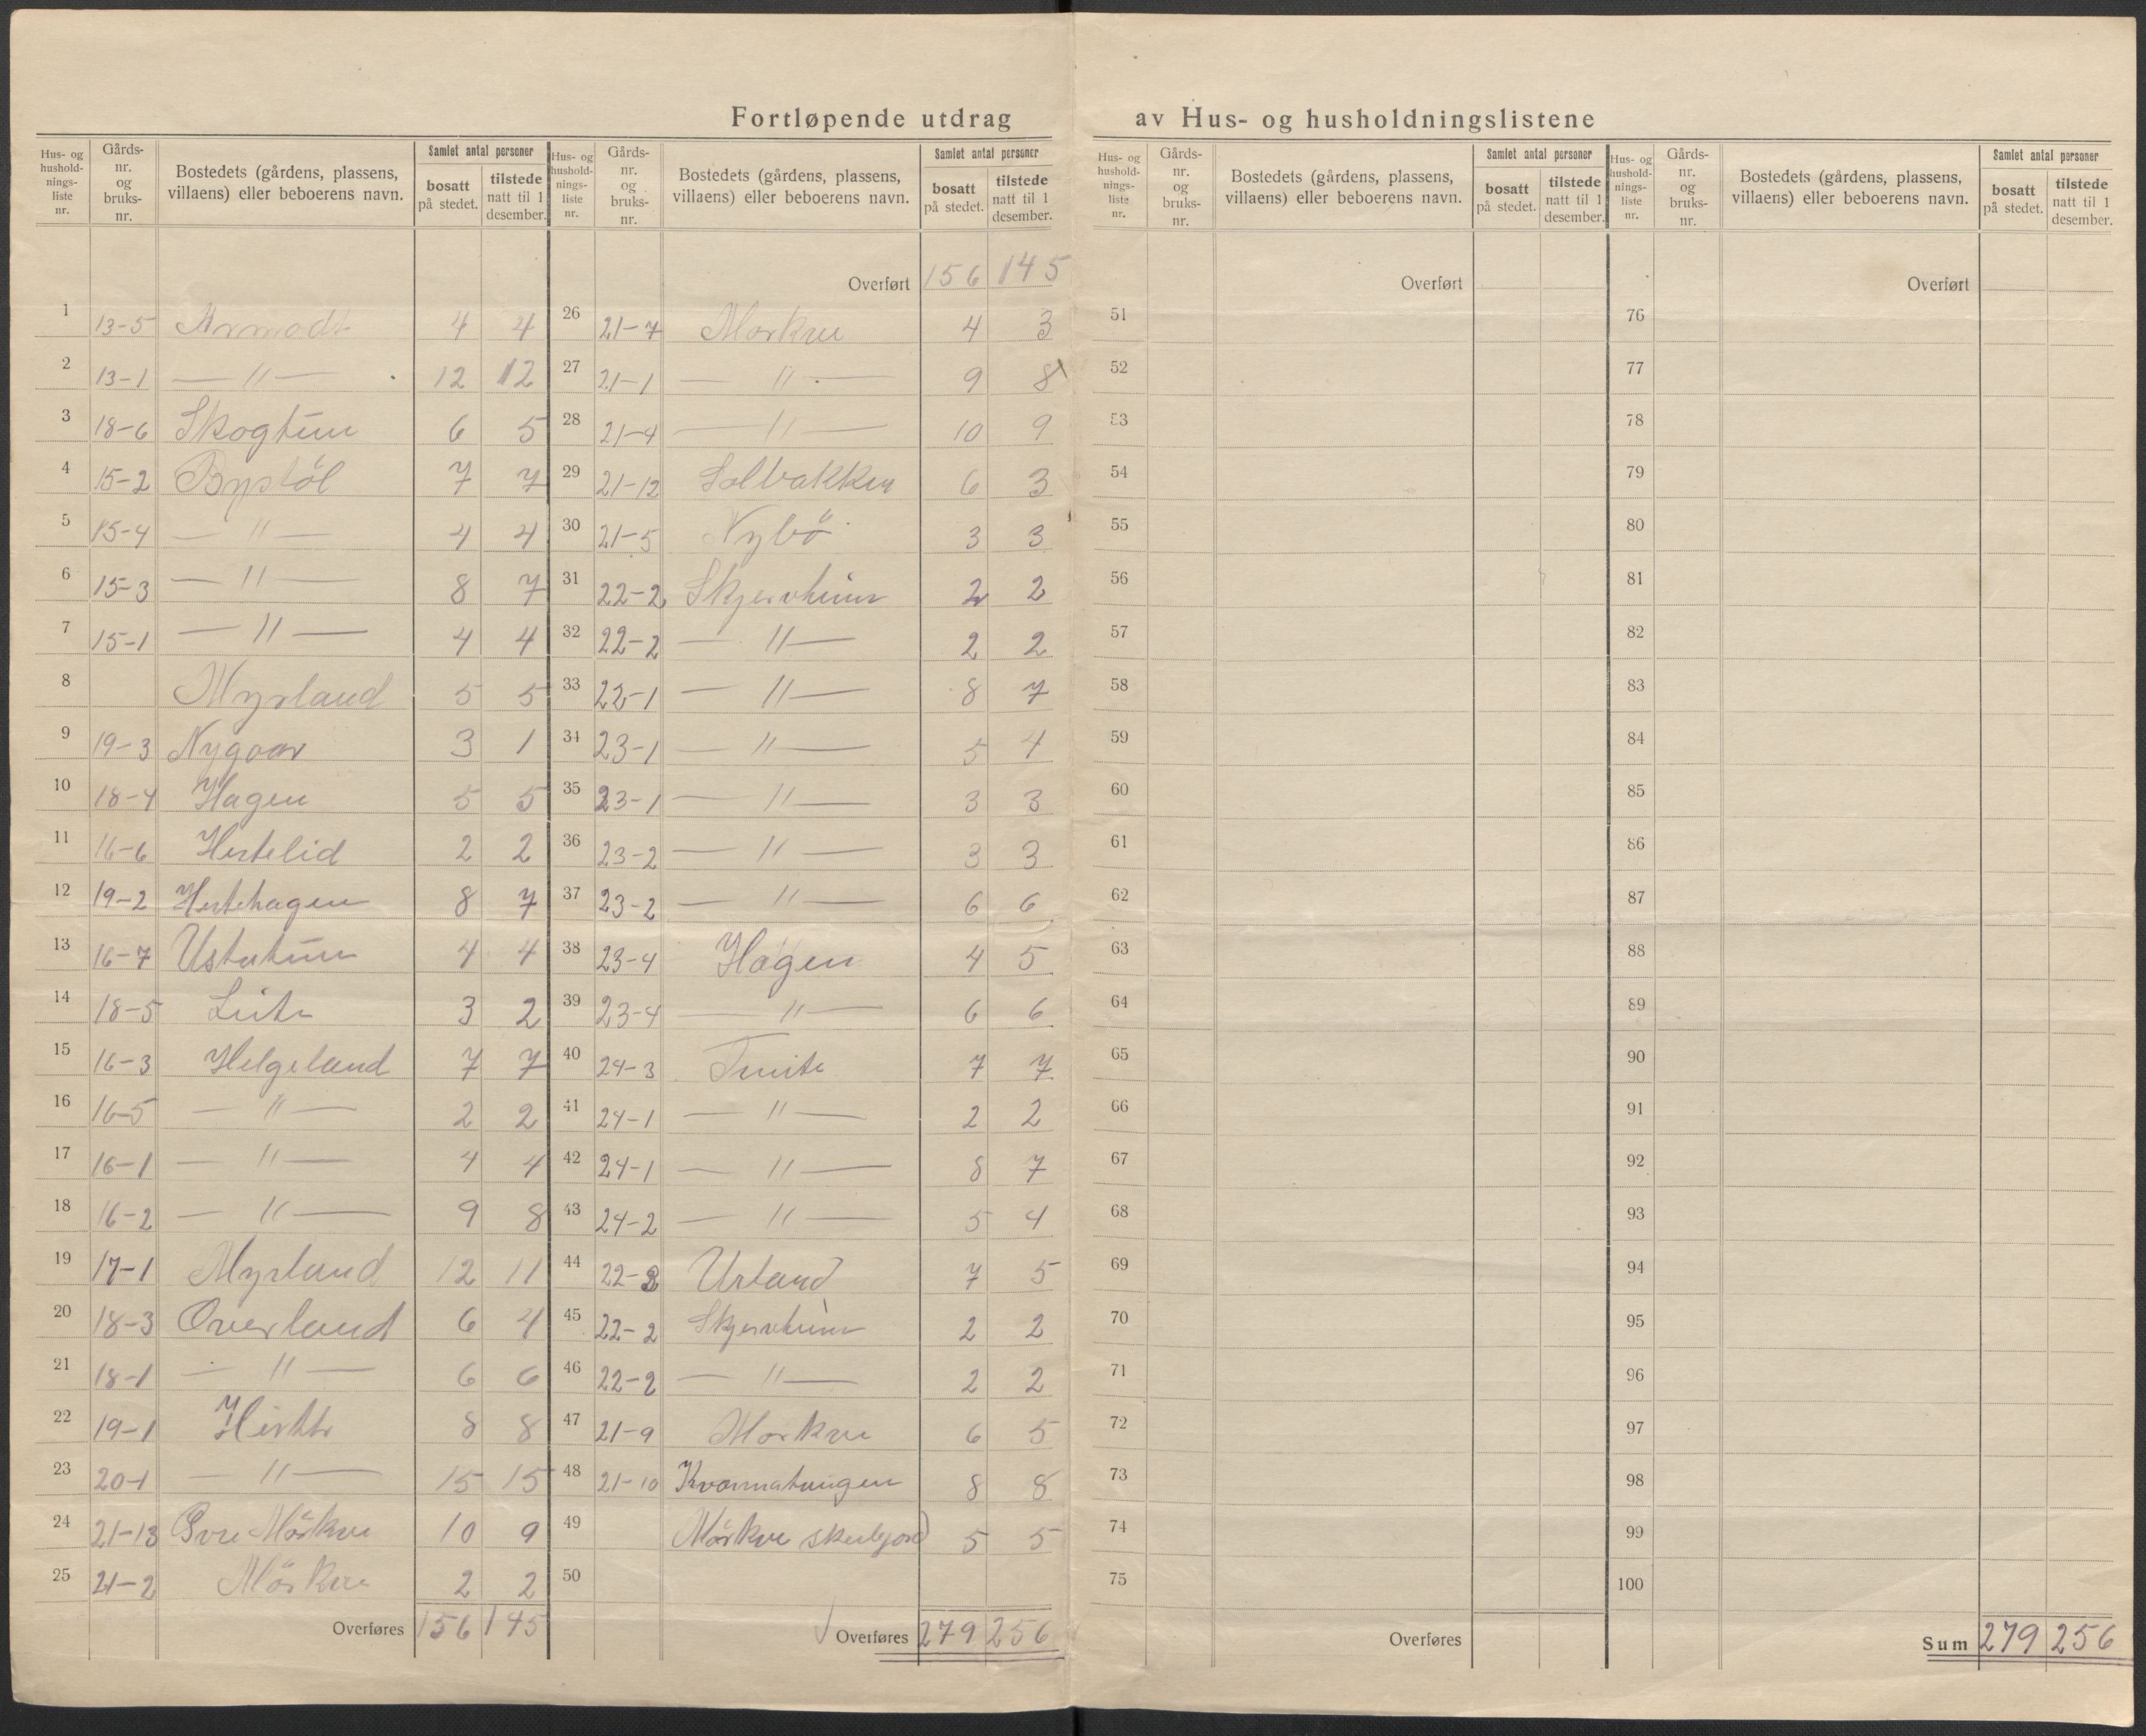 Fortløpende utdrag av Hus- og husholdningslistene
Hus- og hushold- nings- liste nr. Gårds- nr. og bruks- nr. Bostedets (gårdens, plassens, villaens) eller beboerens navn. Samlet antal personer bosatt på stedet. tilstede natt til 1 desember.
Hus- og hushold- nings- liste nr. Gårds- nr. og bruks- nr. Bostedets (gårdens, plassens, villaens) eller beboerens navn. Samlet antal personer bosatt på stedet. tilstede natt til 1 desember.
1 13-5 Armodt 4 4
2 13-1 — " — 12 12
3 18-6 Skogtun 6 5
4 15-2 Bystöl 7 7
5 15-4 — " — 4 4
6 15-3 — " — 8 7
7 15-1 — " — 4 4
8 Myrland 5 5
9 19-3 Nygaar 3 1
10 18-4 Hagen 5 5
11 16-6 Hertelid 2 2
12 19-2 Hertehagen 8 7
13 16-7 Ustatun 4 4
14 18-5 3 2
15 16-3 Helgeland 7 7
16 16-5 — " — 2 2
17 16-1 — " — 4 4
18 16-2 — " — 9 8
19 17-1 Myrland 12 11
20 18-3 Overland 6 4
21 18-1 — " — 6 6
22 19-1 8 8
23 20-1 — " — 15 15
24 21-13 Mörkve 10 9
25 21-2 Mörkve 2 2
Overføres 156 145
Overført 156 145
26 21-7 Morkve 4 3
27 21-1 — " — 9 8
28 21-4 — " — 10 9
29 21-12 Solbakken 6 3
30 21-5 Nybö 3 3
31 22-2 Skjervheim 2 2
32 22-2 — " — 2 2
33 22-1 — " — 8 7
34 23-1 — " — 5 4
35 23-1 — " — 3 3
36 23-2 — " — 3 3
37 23-2 — " — 6 6
38 23-4 Hagen 4 5
39 23-4 — " — 6 6
40 24-3 Tvinte 7 7
41 24-1 — " — 2 2
42 24-1 — " — 8 7
43 24-2 — " — 5 4
44 22-2 Urland 7 5
45 22-2 Skjervheim 2 2
46 22-2 — " — 2 2
47 21-9 Morkve 6 5
48 21-10 Kvarmatungen 8 8
49 Mörkve skulejord 5 5
50
Overføres 279 256
Hus- og hushold- nings- liste nr. Gårds- nr. og bruks- nr. Bostedets (gårdens, plassens, villaens) eller beboerens navn. Samlet antal personer bosatt på stedet. tilstede natt til 1 desember.
Overført
51
52
53
54
55
56
57
58
59
60
61
62
63
64
65
66
67
68
69
70
71
72
73
74
75
Overføres
Hus- og hushold- nings- liste nr. Gårds- nr. og bruks- nr. Bostedets (gårdens, plassens, villaens) eller beboerens navn. Samlet antal personer bosatt på stedet. tilstede natt til 1 desember.
Overført
76
77
78
79
80
81
82
83
84
85
86
87
88
89
90
91
92
93
94
95
96
97
98
99
100
Sum 279 256